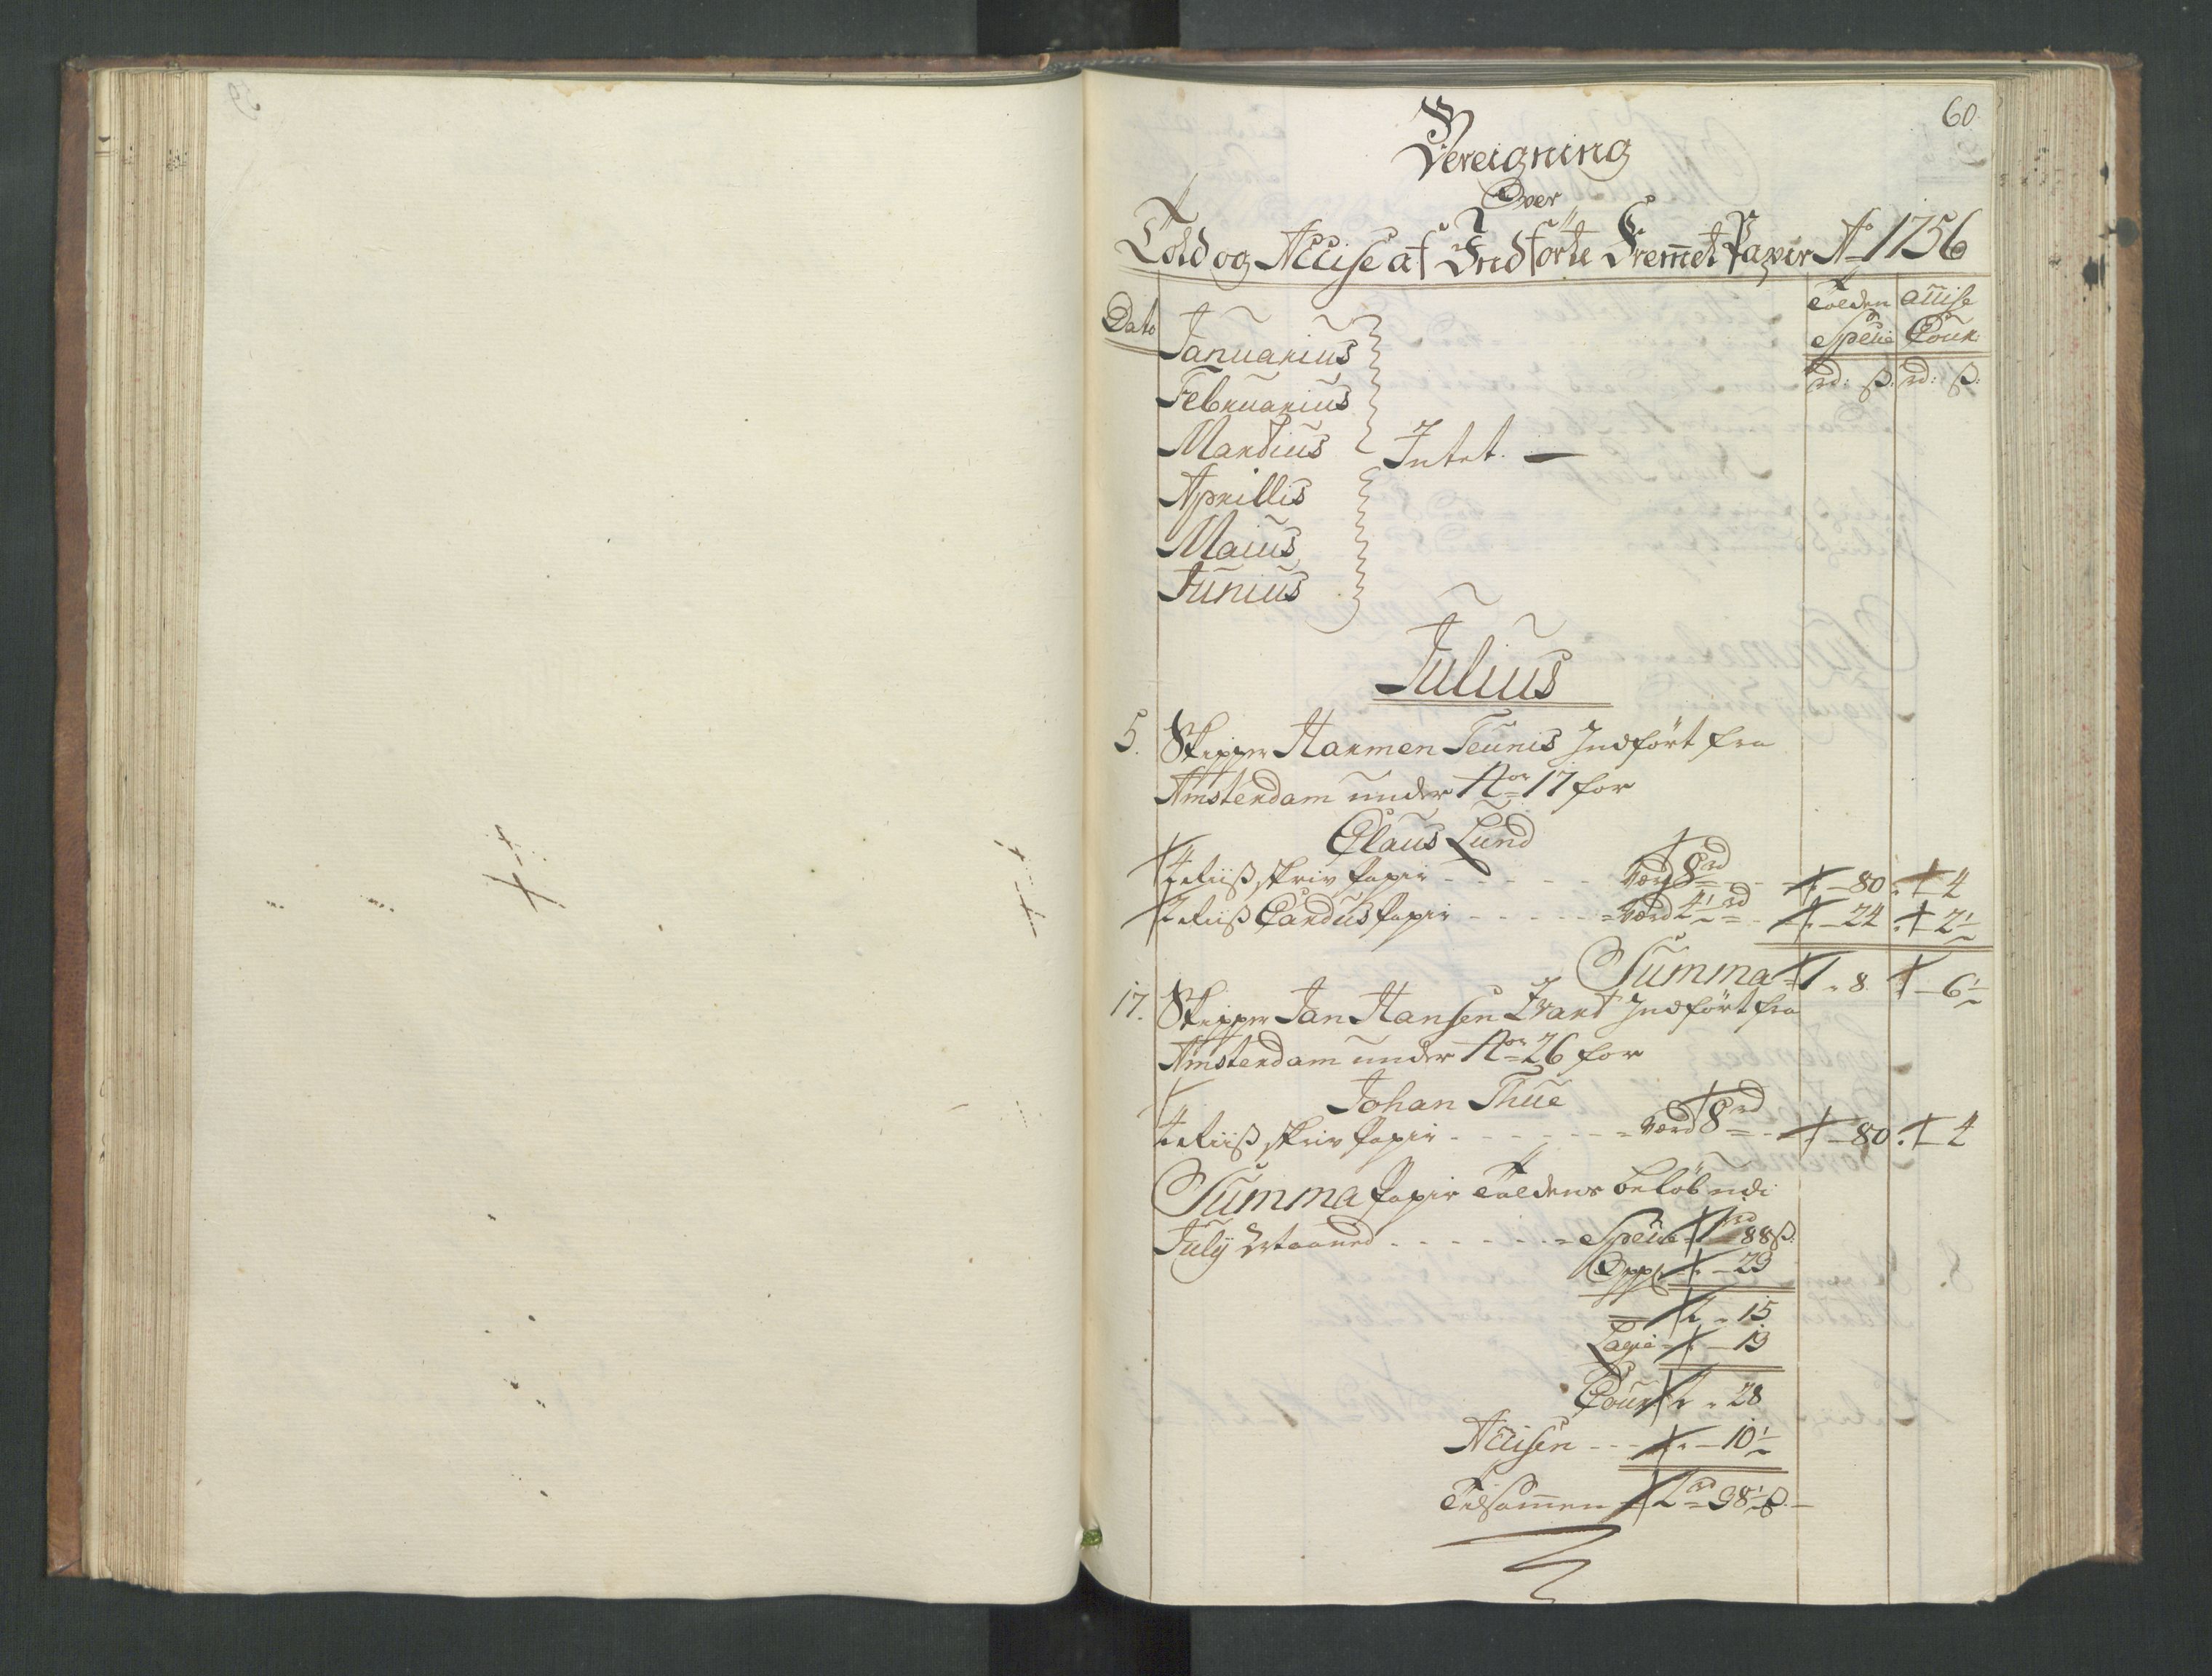 60.
Bereigning
Over
Told og Accise af Indförte Fremmet Papir Ao 1756
Tolden Accise
Dato Specie Cour:
rd: ß: rd: ß:
Januarius
Februarius
Martius Intet. —
Aprillis
Maius
Junius
Julius
5. Skipper Harmen Teunis Indfört fra
Amsterdam under No 17 for
Claus Lund
4 Riiß skriv Papir - - - - - Værd 8 rd - 80 4
Riiß Cardus Papir - - - - - Værd 4½ rd - 24 2½
Summa 1 " 8 6½
17. Skipper Jan Hansen Indfört fra
Amsterdam under No 26 for
Johan Thue
4 Riiß skriv Papir - - - - - Værd 8 rd - 80 4
Summa Papir Toldens Beløb udi
July Maaned - - - - - Specie 1 rd 88 ß:
Opp - 29
2 " 15
Lagie - 13
Cour 2 " 28
Accisen - - - 10½
Tilsammen 2 rd 38½ ß. —